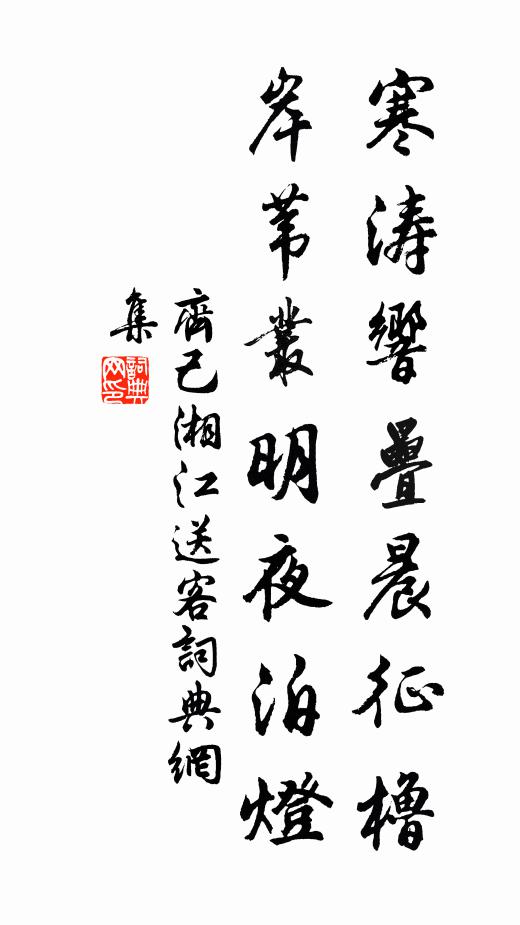 寒濤響疊晨征櫓
岸葦叢明夜泊燈
齊己湘江送客詞典網
集
詞典
网印